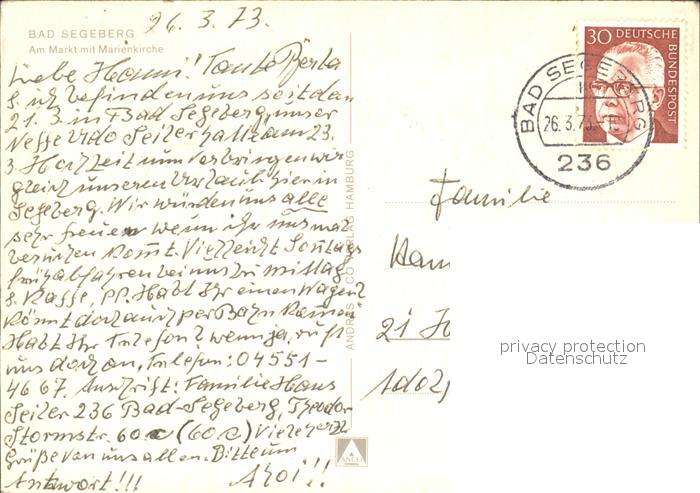 26.3.73.
BAD SEGEBERG
Am Markt mit Marienkirche
Liebe Hanni! Tante Berta
& ich befinden uns seit dem
21.3. in Bad Segeberg, unser
Neffe Udo Seiler hatte am 23.
3. Hochzeit nun verbringen wir
gleich unseren Urlaub hier in
Segeberg. Wir würden uns alle
sehr freuen wenn ihr uns mal
besuchen kommt. Vielleicht Sonntags
früh abfahren bei uns zu Mittag
& Kaffe, pp. Habt Ihr einen Wagen?
Könnt doch auch per Bahn kommen
Habt Ihr Telefon? wenn ja, ruft
uns doch an, Telefon: 04551-
4667. Anschrift: Familie Hans
Seiler 236 Bad-Segeberg, Theodor
Stormstr. 60 c (60 c) Viele herzl.
Grüße von uns allen. Bitte um
Antwort!!! Ahoi!!!
ANDRES + CO VERLAG HAMBURG
ANCO
30 DEUTSCHE
BUNDESPOST
BAD SEGEBERG
26.3.73
236
Familie
21
privacy protection
Datenschutz